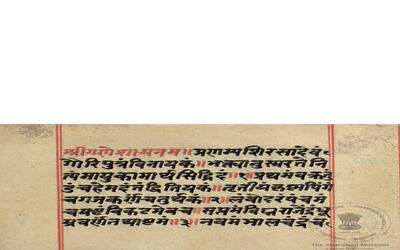 श्रीगणेशायनमः॥ प्रणम्यशिरसादेवं
गौरिपुत्रंविनायकं॥ भक्त्यायुस्मरतेनि
त्यमायुकामार्थसिद्धिदं॥१॥ प्रथमंवक्रतुं
डंचहेमदंतंद्वितियकं॥ तृतीयंकृष्णपिंगं
चगजकर्णंचतुर्थकं॥२॥ लंबोदरंपंचमं
चषष्ठंविकटमेवच॥ सप्तमंविघ्नराजेंद्रंधु
म्रवर्णंतथाष्टमं॥३॥ नवमंभालचंद्रंच
The Allahabad Museum